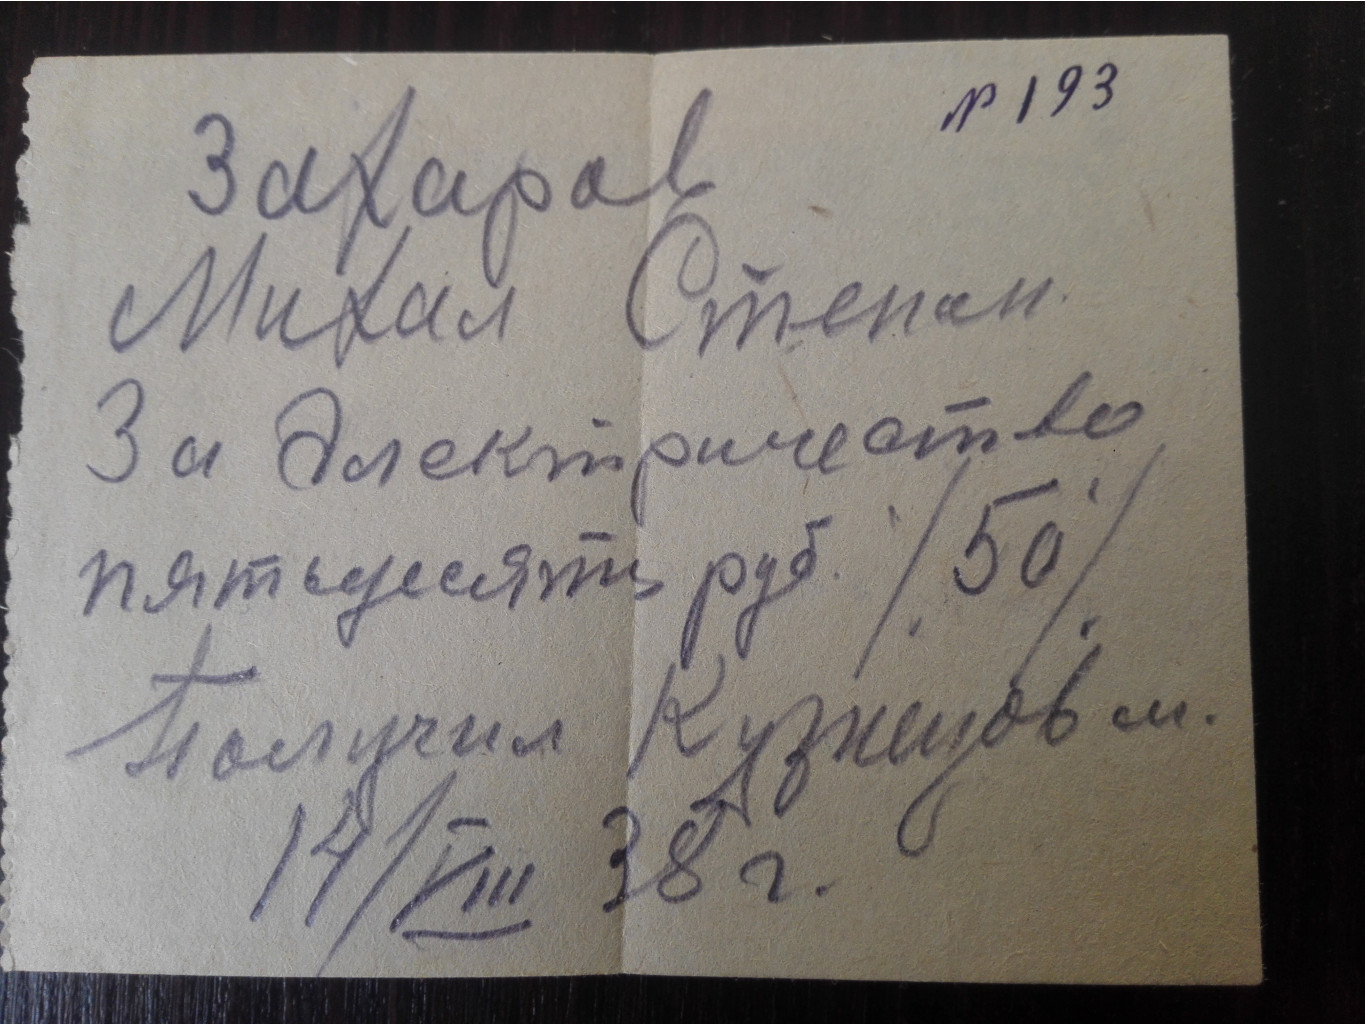 № 193
Захаров
Михал Степан.
За Электричество
пятьдесять руб. /50/
Получил Кузнецов м.
14/VIII 38 г.